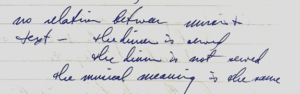 no relation between music &
text — the dinner is served
the dinner is not served
the musical meaning is the same